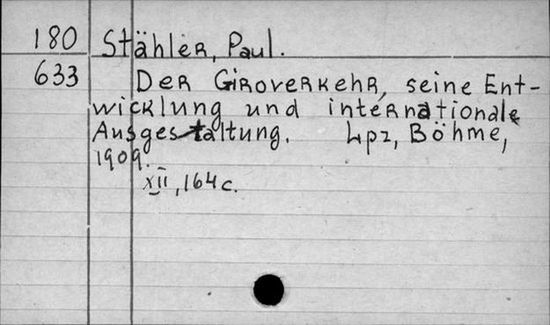 180 Stähler, Paul.
633 Der Giroverkehr, seine Ent-
wicklung und internationale
Ausgestaltung. Lpz, Böhme,
1909.
XII, 164 c.